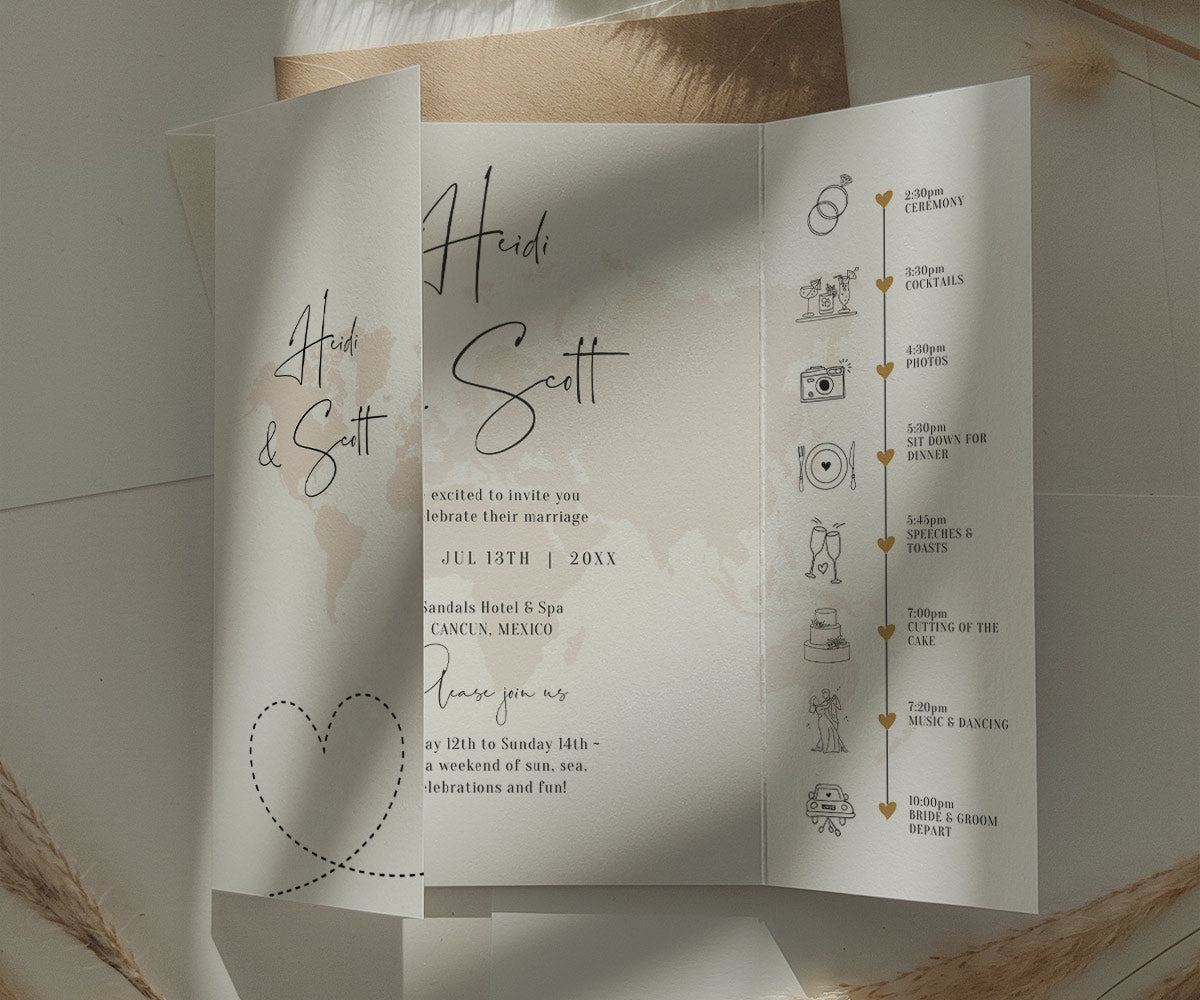 Heidi
& Scott
Heidi
Scott
excited to invite you
lebrate their marriage
JUL 13TH | 20XX
Sandals Hotel & Spa
CANCUN, MEXICO
Please join us
ay 12th to Sunday 14th ~
a weekend of sun, sea,
lebrations and fun!
2:30pm
CEREMONY
3:30pm
COCKTAILS
4:30pm
PHOTOS
5:30pm
SIT DOWN FOR
DINNER
5:45pm
SPEECHES &
TOASTS
7:00pm
CUTTING OF THE
CAKE
7:20pm
MUSIC & DANCING
10:00pm
BRIDE & GROOM
DEPART